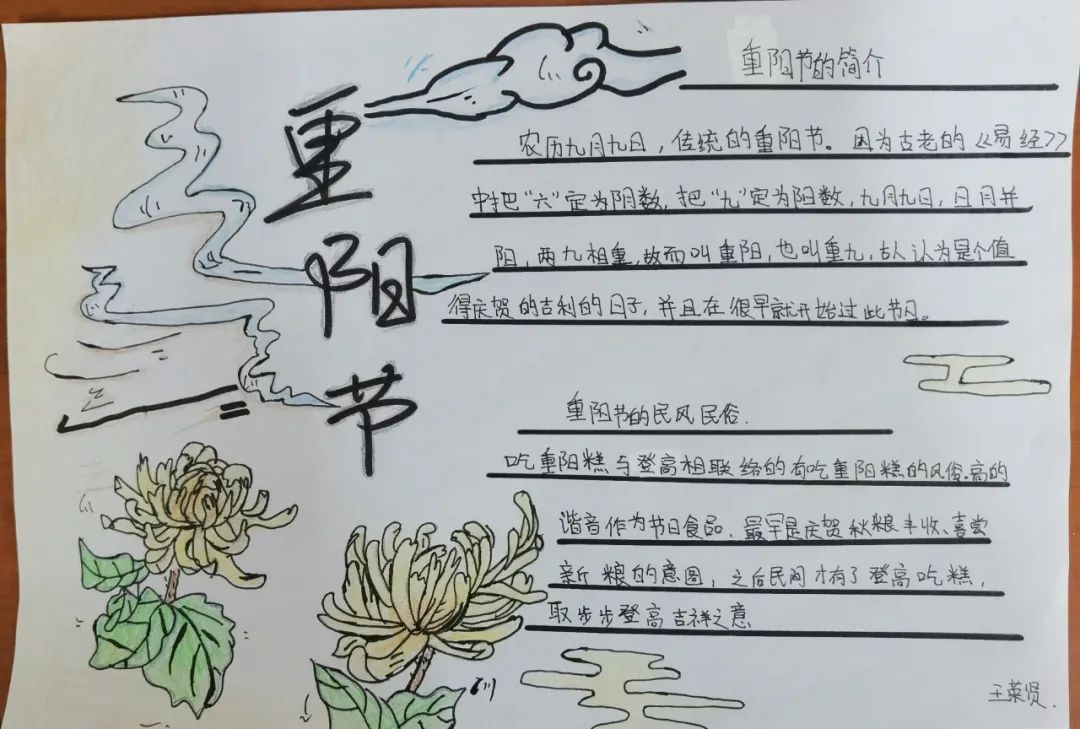 重阳节
重阳节的简介
农历九月九日，传统的重阳节。因为古老的《易经》
中把“六”定为阴数，把“九”定为阳数，九月九日，日月并
阳，两九相重，故而叫重阳，也叫重九，古人认为是个值
得庆贺的吉利的日子，并且在很早就开始过此节日。
重阳节的民风民俗.
吃重阳糕与登高相联络的有吃重阳糕的风俗.高的
谐音作为节日食品，最早是庆贺秋粮丰收、喜尝
新粮的意图，之后民间才有了登高吃糕，
取步步登高吉祥之意
王荣贤.